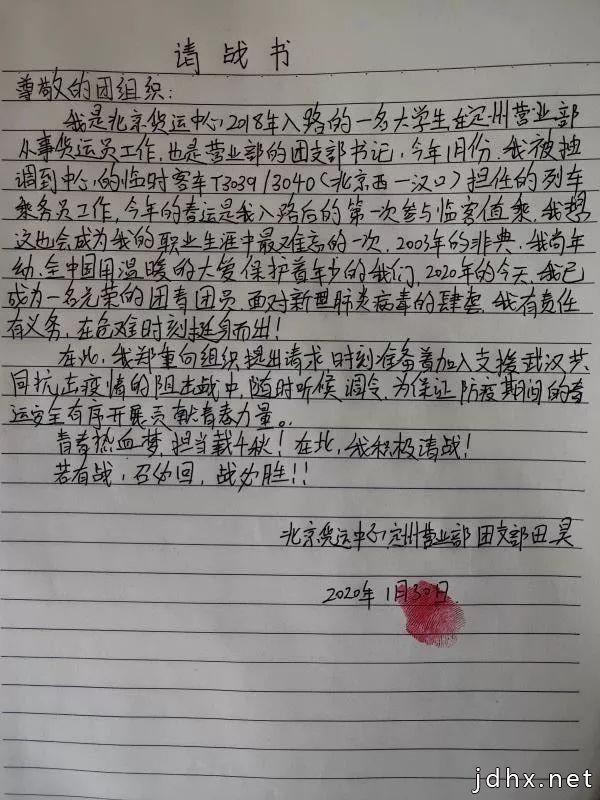 请战书
尊敬的团组织:
我是北京货运中心2018年入路的一名大学生在定州营业部
从事货运员工作,也是营业部的团支部书记,今年1月份,我被抽
调到中心的临时客车T3039/3040(北京西一汉口)担任的列车
乘务员工作,今年的春运是我入路后的第一次参与临客值乘,我想
这也会成为我的职业生涯中最难忘的一次,2003年的非典,我尚年
幼,全中国用温暖的大爱保护着年少的我们,2020年的今天,我已
成为一名光荣的团青团员,面对新型肺炎病毒的肆虐,我有责任
有义务,在危难时刻挺身而出!
在此,我郑重向组织提出请求时刻准备着加入支援武汉共
同抗击疫情的阻击战中,随时听候调令,为保证防疫期间的春
运安全有序开展贡献青春力量。
青春热血梦,担当载千秋!在此,我积极请战!
若有战,召必回,战必胜!!
北京货运中心定州营业部团支部田昊
2020年1月30日
jdhx.net